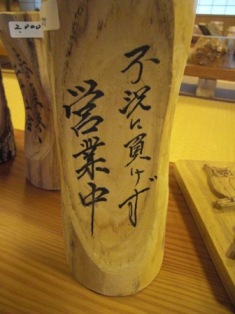 不況に負けず
営業中
2,000